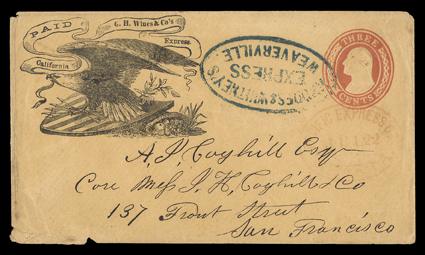 PAID
G. H. Wines & Co's
Express.
California
RHODES & WHITNEY'S
EXPRESS
WEAVERVILLE
THREE
CENTS
EXPRESS
A. J. Coghill Esqr
Care Mess J. H. Coghill & Co
137 Front Street
San Francisco